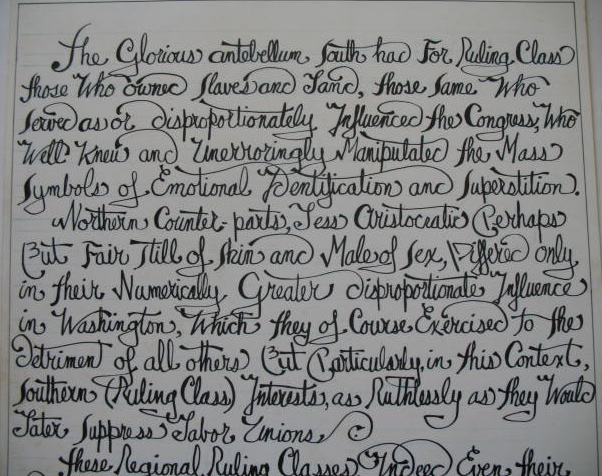 The Glorious antebellum South had For Ruling Class
those Who owned Slaves and Land, those Same Who
Served as or disproportionately Influenced the Congress, Who
Well Knew and Unerroringly Manipulated the Mass
Symbols of Emotional Identification and Superstition.
Northern Counter-parts, Less Aristocratic Perhaps
But Fair Still of Skin and Male of Sex, Differed only
in their Numerically Greater disproportionate Influence
in Washington, Which they of Course Exercised to the
Detriment of all others But Particularly, in this Context,
Southern (Ruling Class) Interests, as Ruthlessly as they Would
Later Suppress Labor Unions.
these Regional Ruling Classes Indeed Even their